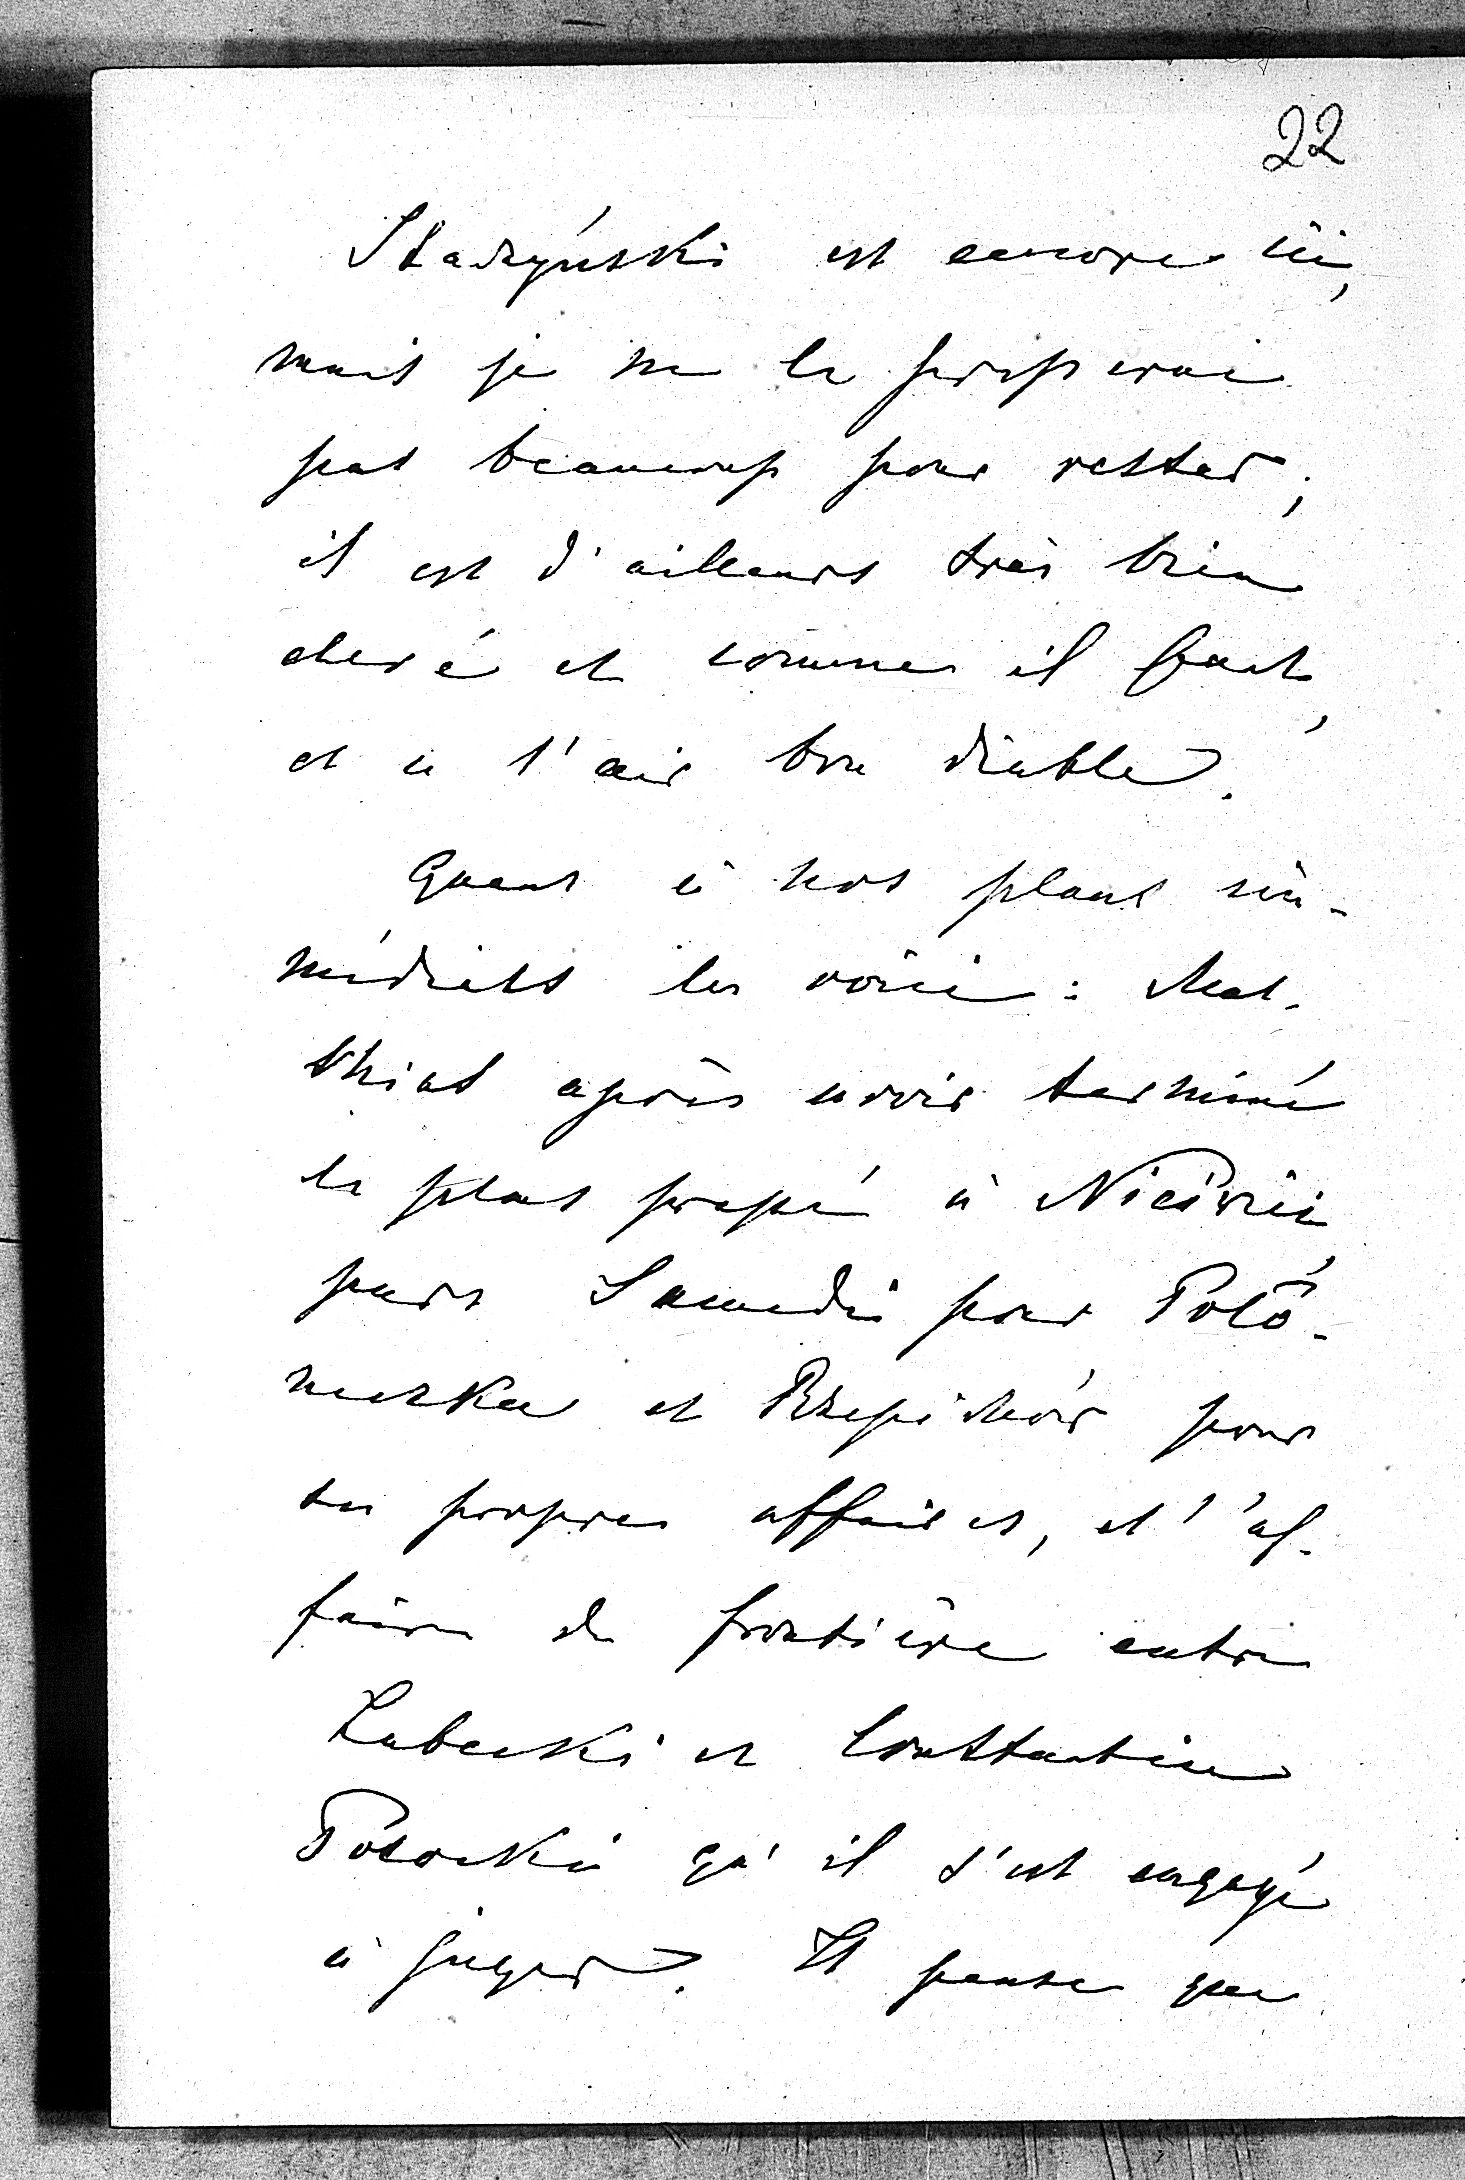 22
Starzyński est encore ici,
mais je ne le presserai
pas beaucoup pour rester;
il est d'ailleurs très bien
élevé et comme il faut,
et a l'air bon diable.
Quant à nos plans im-
médiats les voici: Mat-
thias après avoir terminé
le plus pressé à Nieśwież
part Samedi pour Poło-
neczka et Rzepichów pour
ses propres affaires, et l'af-
faire de frontière entre
Lubecki et Constantin
Potocki qu'il s'est engagé
à juger. Il pense que